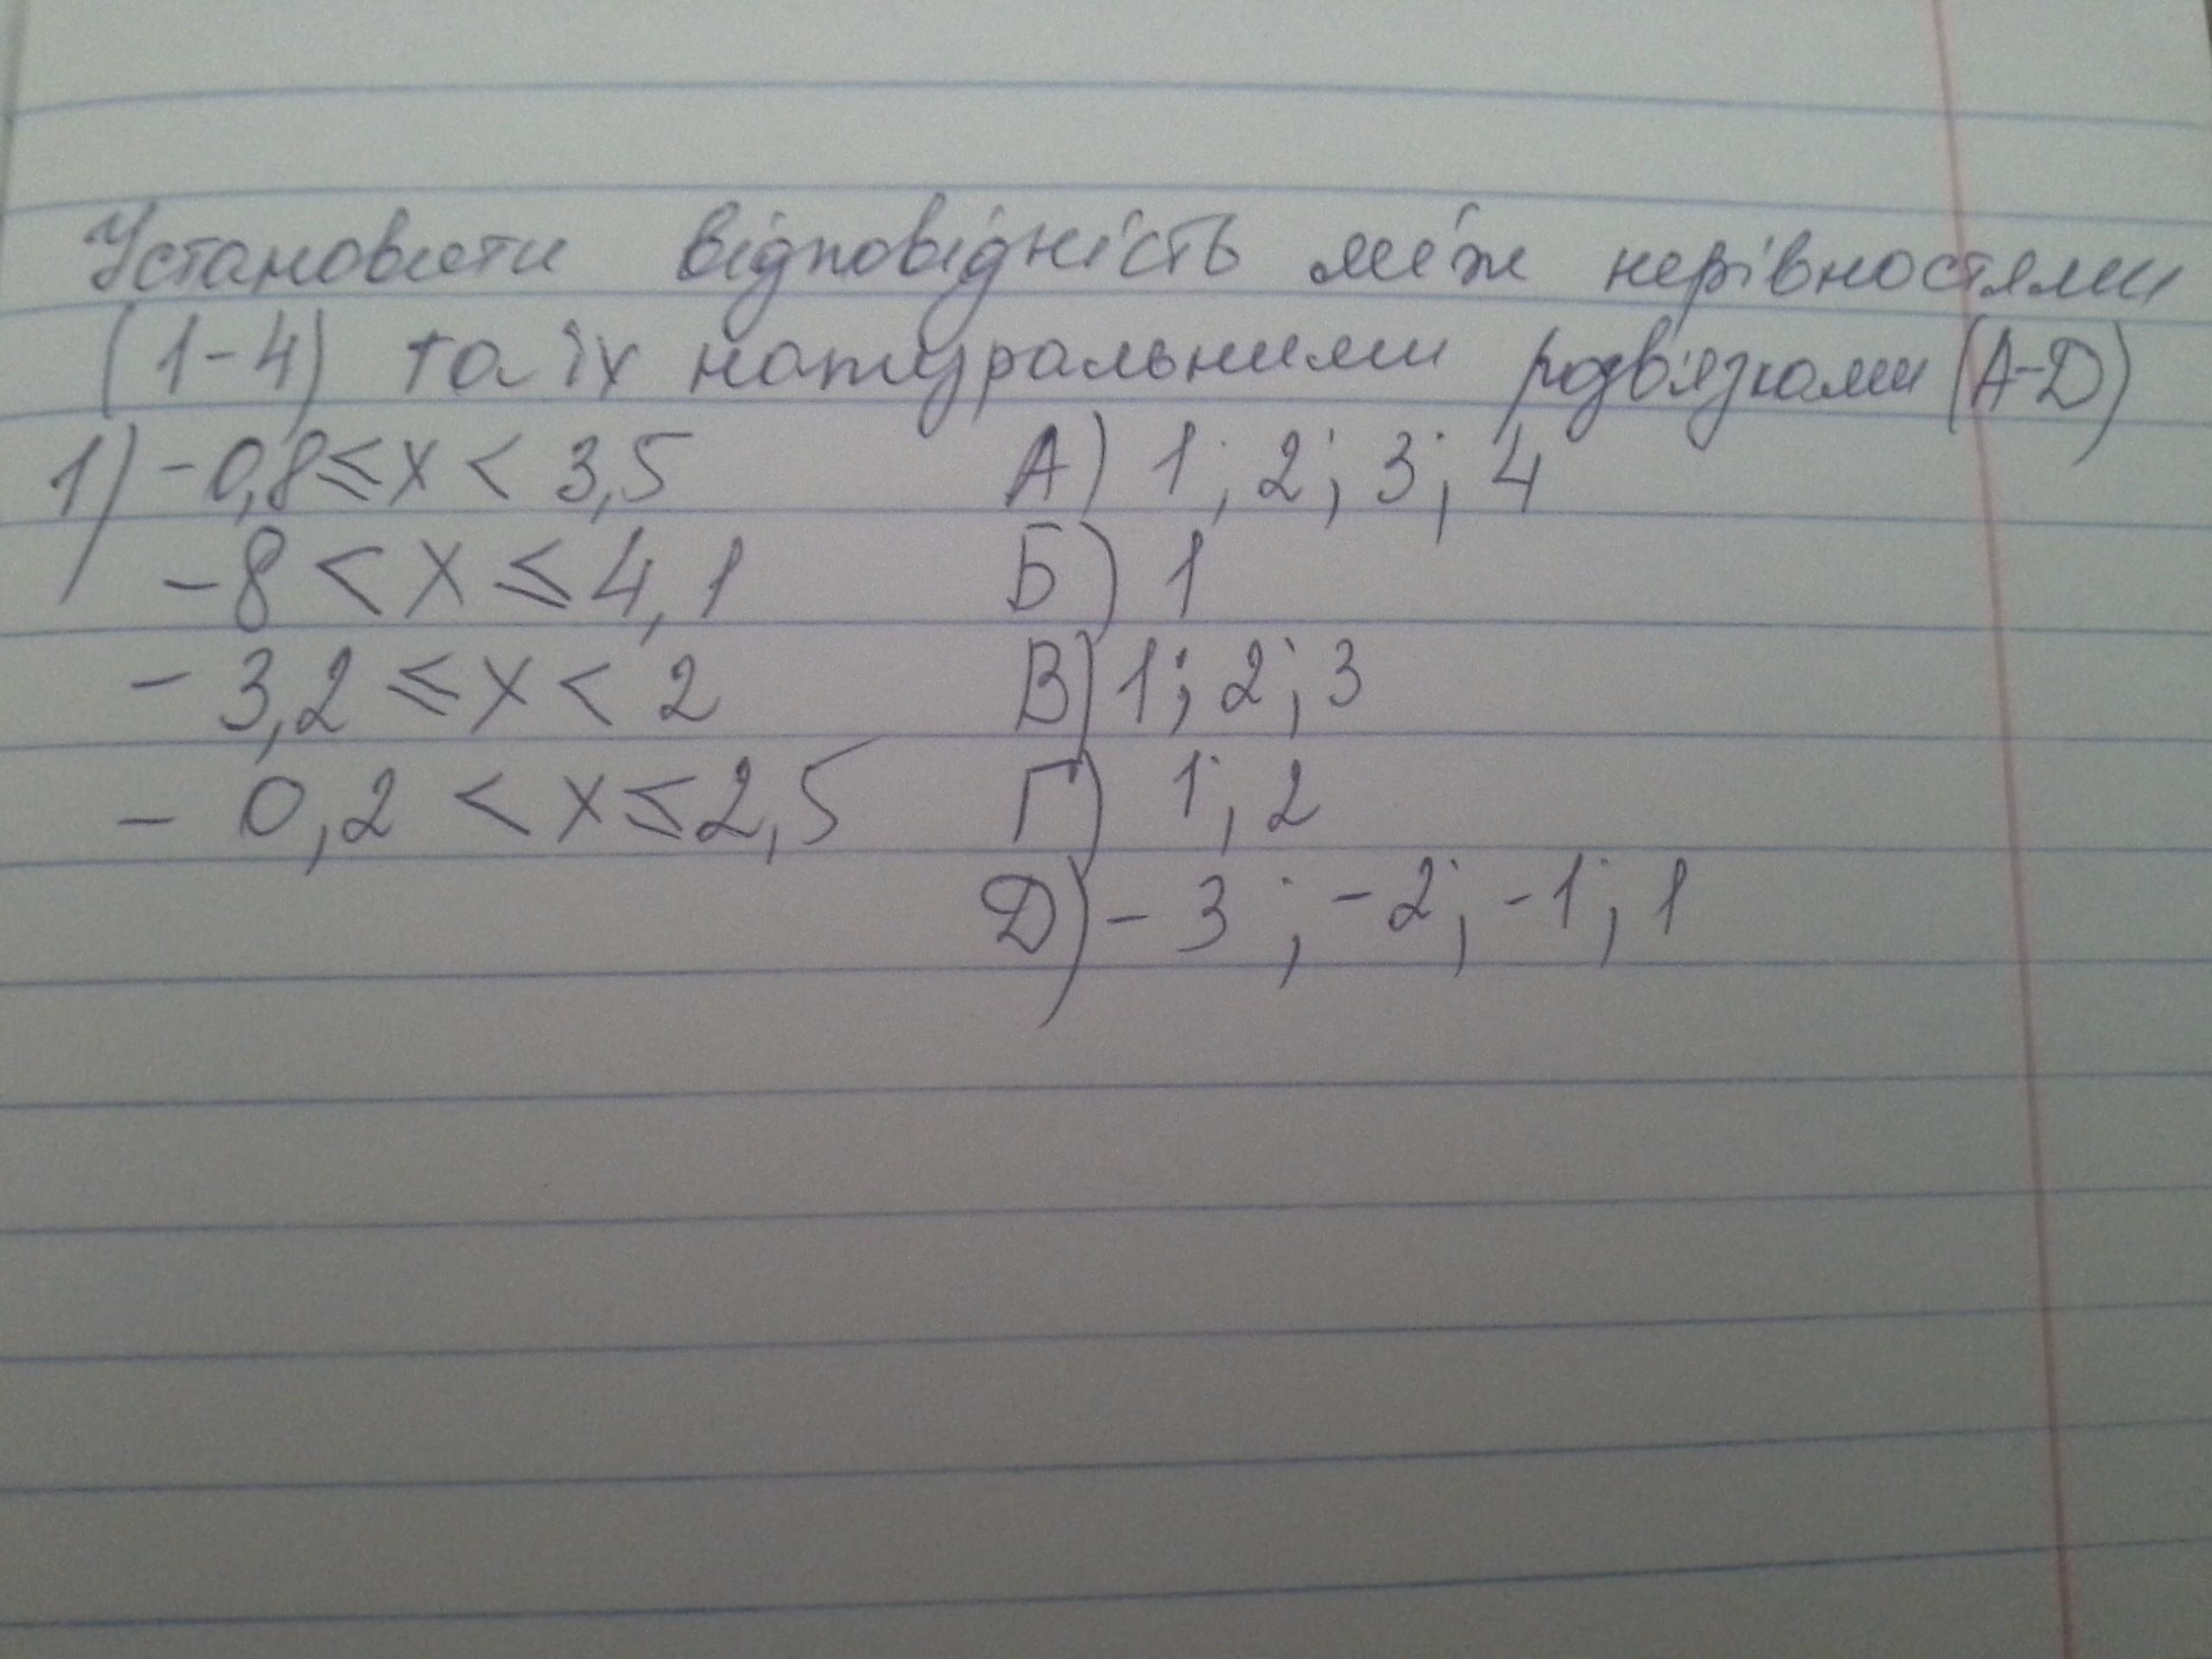 Установити відповідність між нерівностями
(1-4) та їх натуральними розв'язками (А-Д)
1) -0,8 ≤ x < 3,5 А) 1; 2; 3; 4
-8 < x ≤ 4,1 Б) 1
- 3,2 ≤ x < 2 В) 1; 2; 3
- 0,2 < x ≤ 2,5 Г) 1; 2
Д) - 3; -2; -1; 1